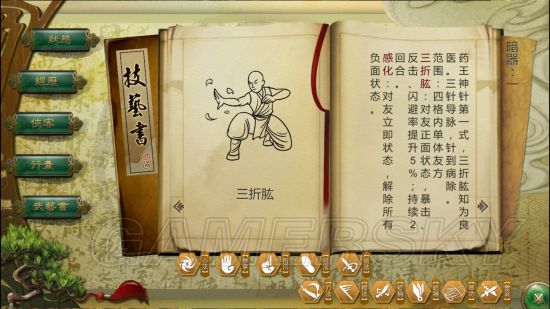 狀態
經歷
俠客
行囊
技藝書
技藝書
三折肱
暗器：一
药王神针第一式，三折肱知为良
医。三针导脉，针到病除。
范围：四格内单体友方
三折肱：对友正面状态，暴击、
反击、闪避率提升5%；持续2
回合。
感化：对友立即状态，解除所有
负面状态。
GAMERSKY